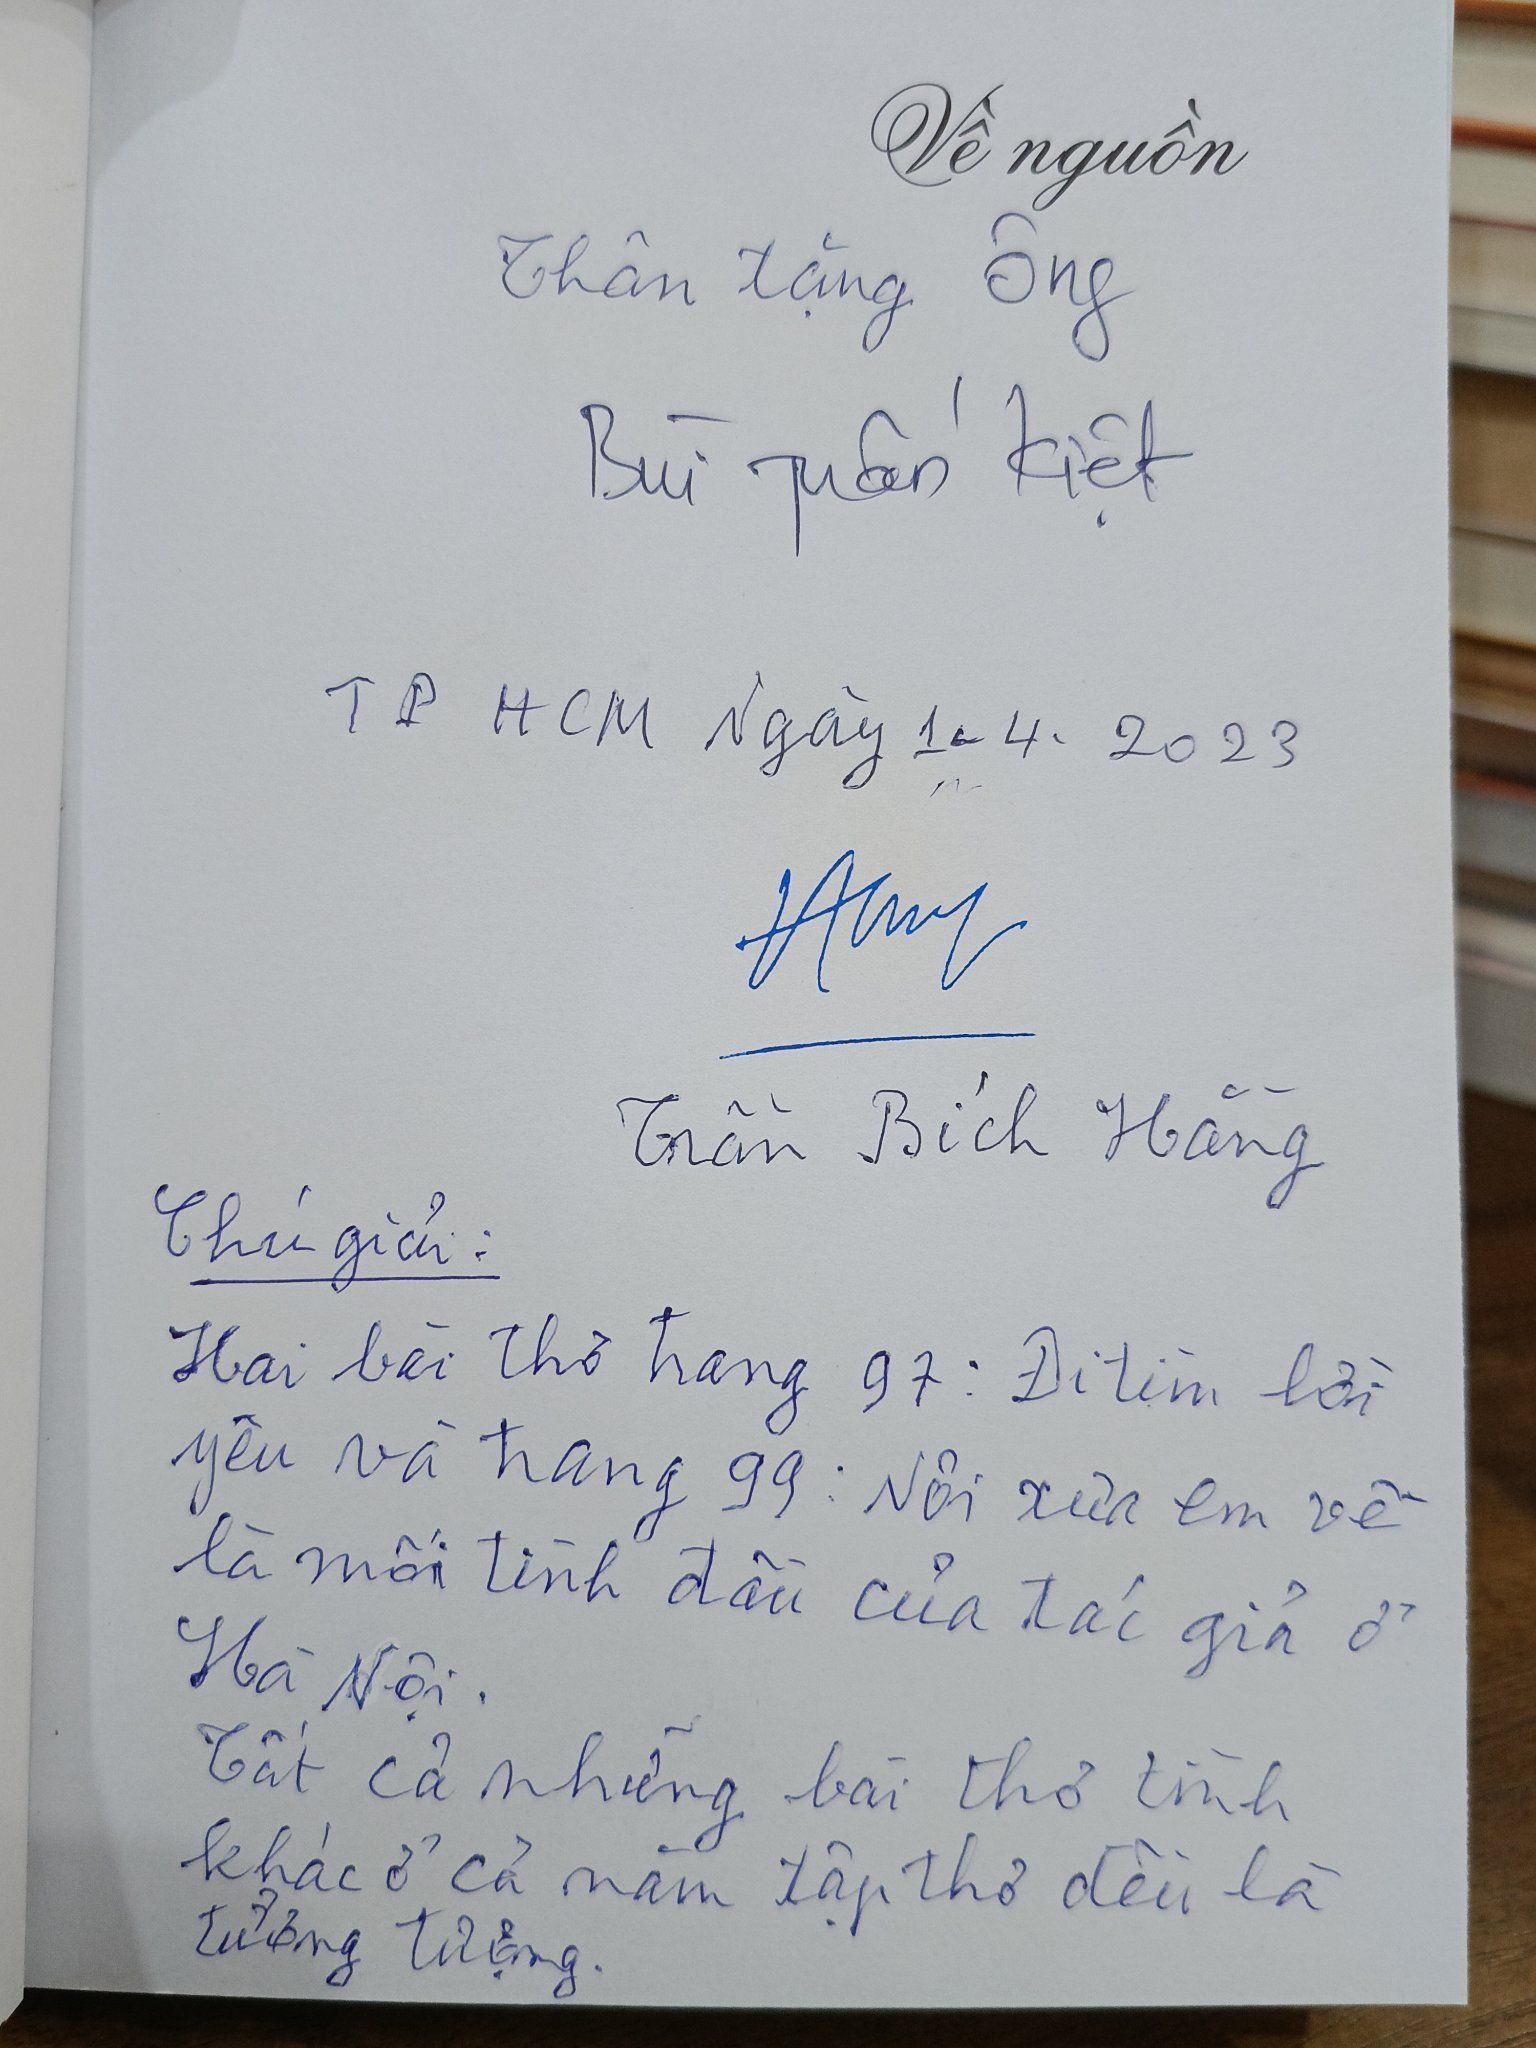 Về nguồn
Thân tặng Ông
Bùi Kiệt
TP HCM Ngày 1-4-2023
Trần Bích Hằng
Chú giải:
Hai bài thơ trang 97: Đi tìm lời
yêu và trang 99: Nôi xưa em về
là mối tình đầu của tác giả ở
Hà Nội.
Tất cả những bài thơ tình
khác ở cả năm tập thơ đều là
tưởng tượng.